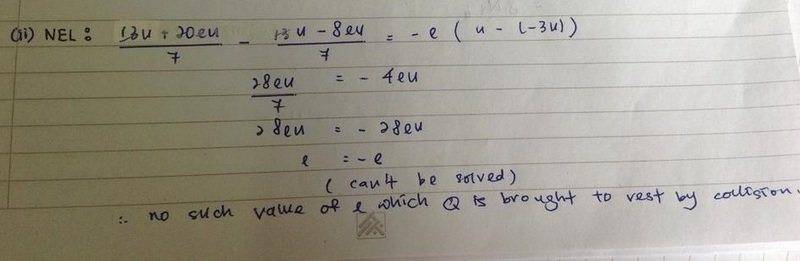 (ii) NEL: (13u + 20eu)/7 - (13u - 8eu)/7 = -e (u - (-3u))
28eu/7 = - 4eu
28eu = - 28eu
e = - e
(can't be solved)
∴ no such value of e which Q is brought to rest by collision.